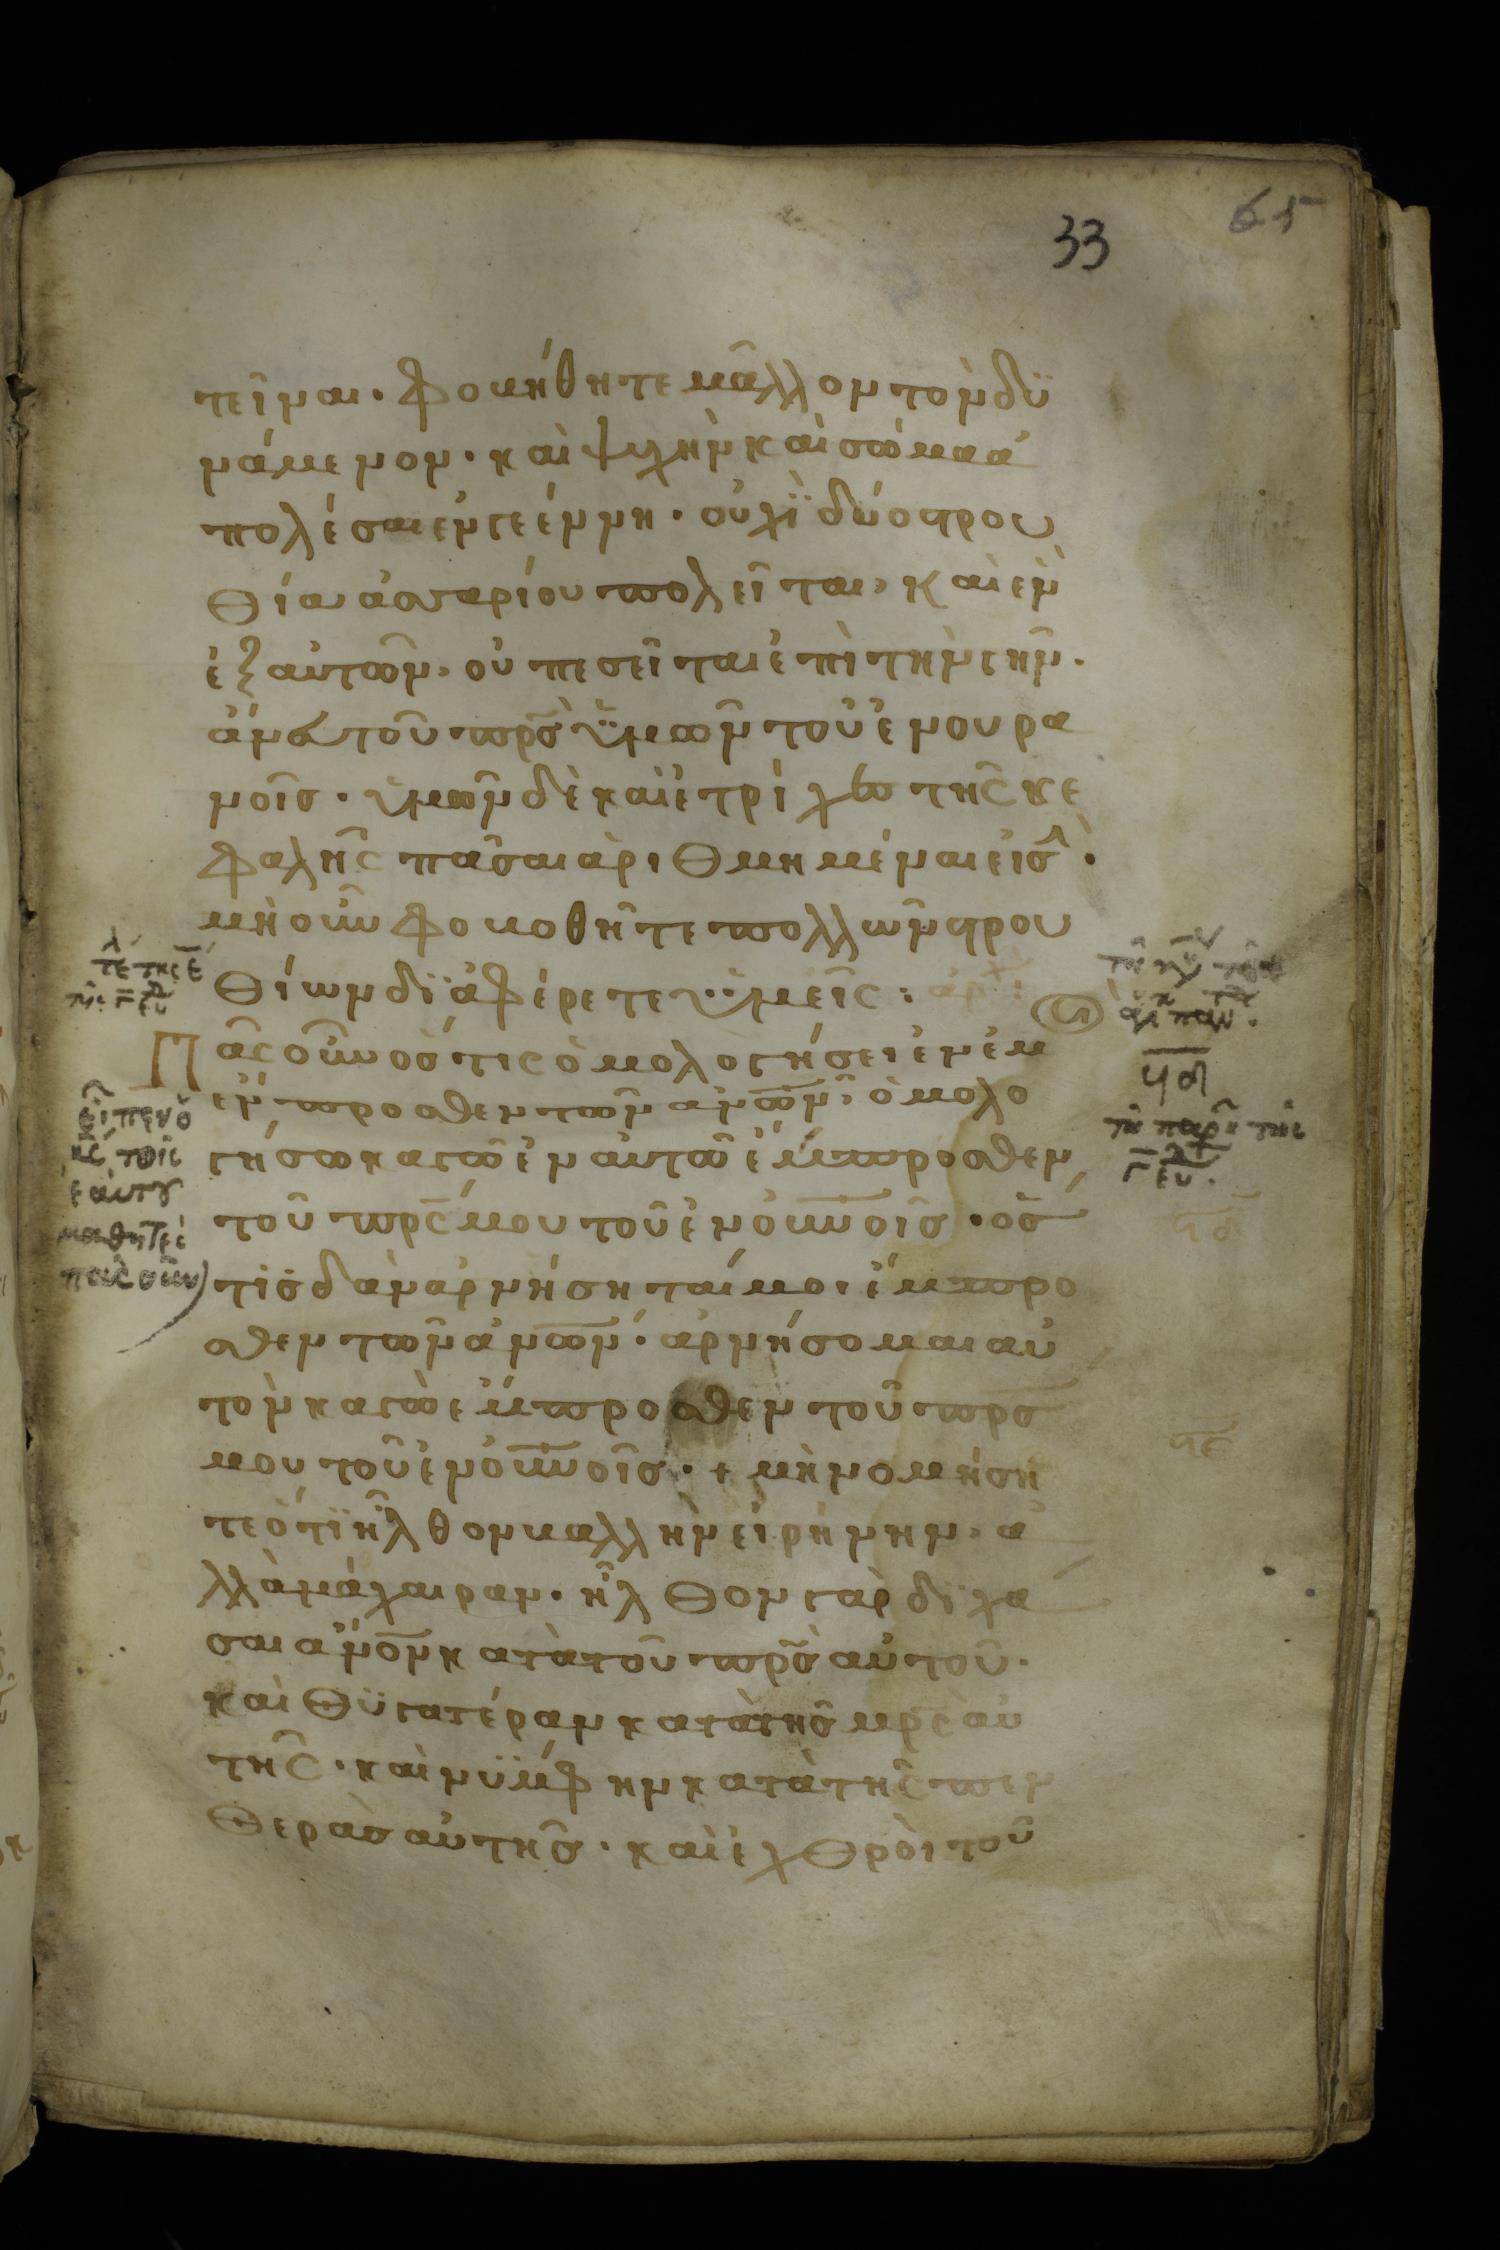 33
65
τεῖναι· φοβήθητε μᾶλλον τὸν δϋ
νάμενον· καὶ ψυχὴν καὶ σῶμα ἀ
πολέσαι ἐν γεέννη· οὐχῒ δύο στρου
θία ἀσσαρίου πολεῖται, καὶ ἓν
ἐξ αὐτῶν, οὐ πεσεῖται ἐπὶ τὴν γῆν·
ἄνευ τοῦ πρσ ὑμῶν τοῦ ἐν ουρα
νοῖσ· ὑμῶν δὲ καὶ ἑ τρίχες τῆς κε
φαλῆς πᾶσαι ἀριθμημέναι εἰσὶ·
μὴ οὖν φοβοθῆτε πολλῶν στρου
θίων δϊαφέρετε ὑμεῖς:
Πᾶς οὖν ὅστις ὁμολογήσει ἐν ἐμ
ἔμπροσθεν τῶν ἀνων, ὁμολο
γήσω κἀγῶ ἐν αὐτῶ ἔμπροσθεν
τοῦ πρς μου τοῦ ἐν ὀυνοῖσ· ὅσ
τισ δ' ἂν ἀρνήσηταί μοι ἔμπρο
σθεν τῶν ἀνων· ἀρνήσομαι αὐ
τὸν καγὼ ἔμπροσθεν τοῦ πρσ
μου τοῦ ἐν ὀυνοῖσ· + μὴ νομήση
τε ὅτϊ ἦλθον βαλλὴν εἰρήνην, ἀ
λλὰ μάχαιραν· ἦλθον γὰρ δϊχά
σαι ἄνον κατὰ τοῦ πρσ αὐτοῦ·
καὶ θϋγατέραν κατὰ τῆσ μρς αὐ
τῆς· καὶ νϋμφην κατὰ τῆς πεν
θερᾶσ αὐτῆσ· καὶ ἐχθρὸι τοῦ
εἶπεν ὁ
κς τοῖς
ἑαυτοῦ
μαθηταῖ
πᾶς οὖν